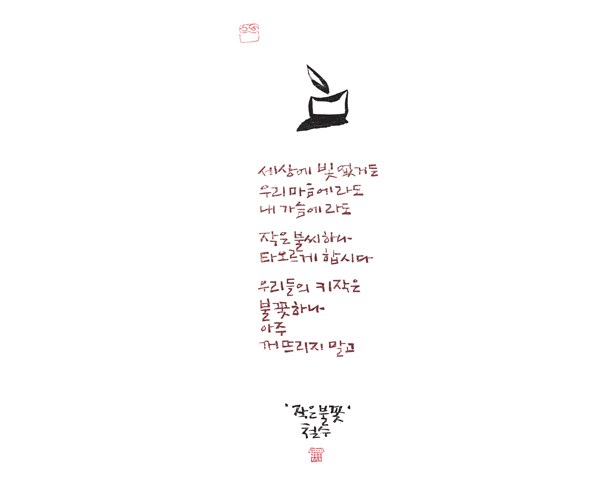 세상에 빛 없거든
우리 마음에라도
내 가슴에라도
작은 불씨하나
타오르게 합시다
우리들의 키작은
불꽃하나
아주
꺼뜨리지 말고
'작은불꽃'
철수